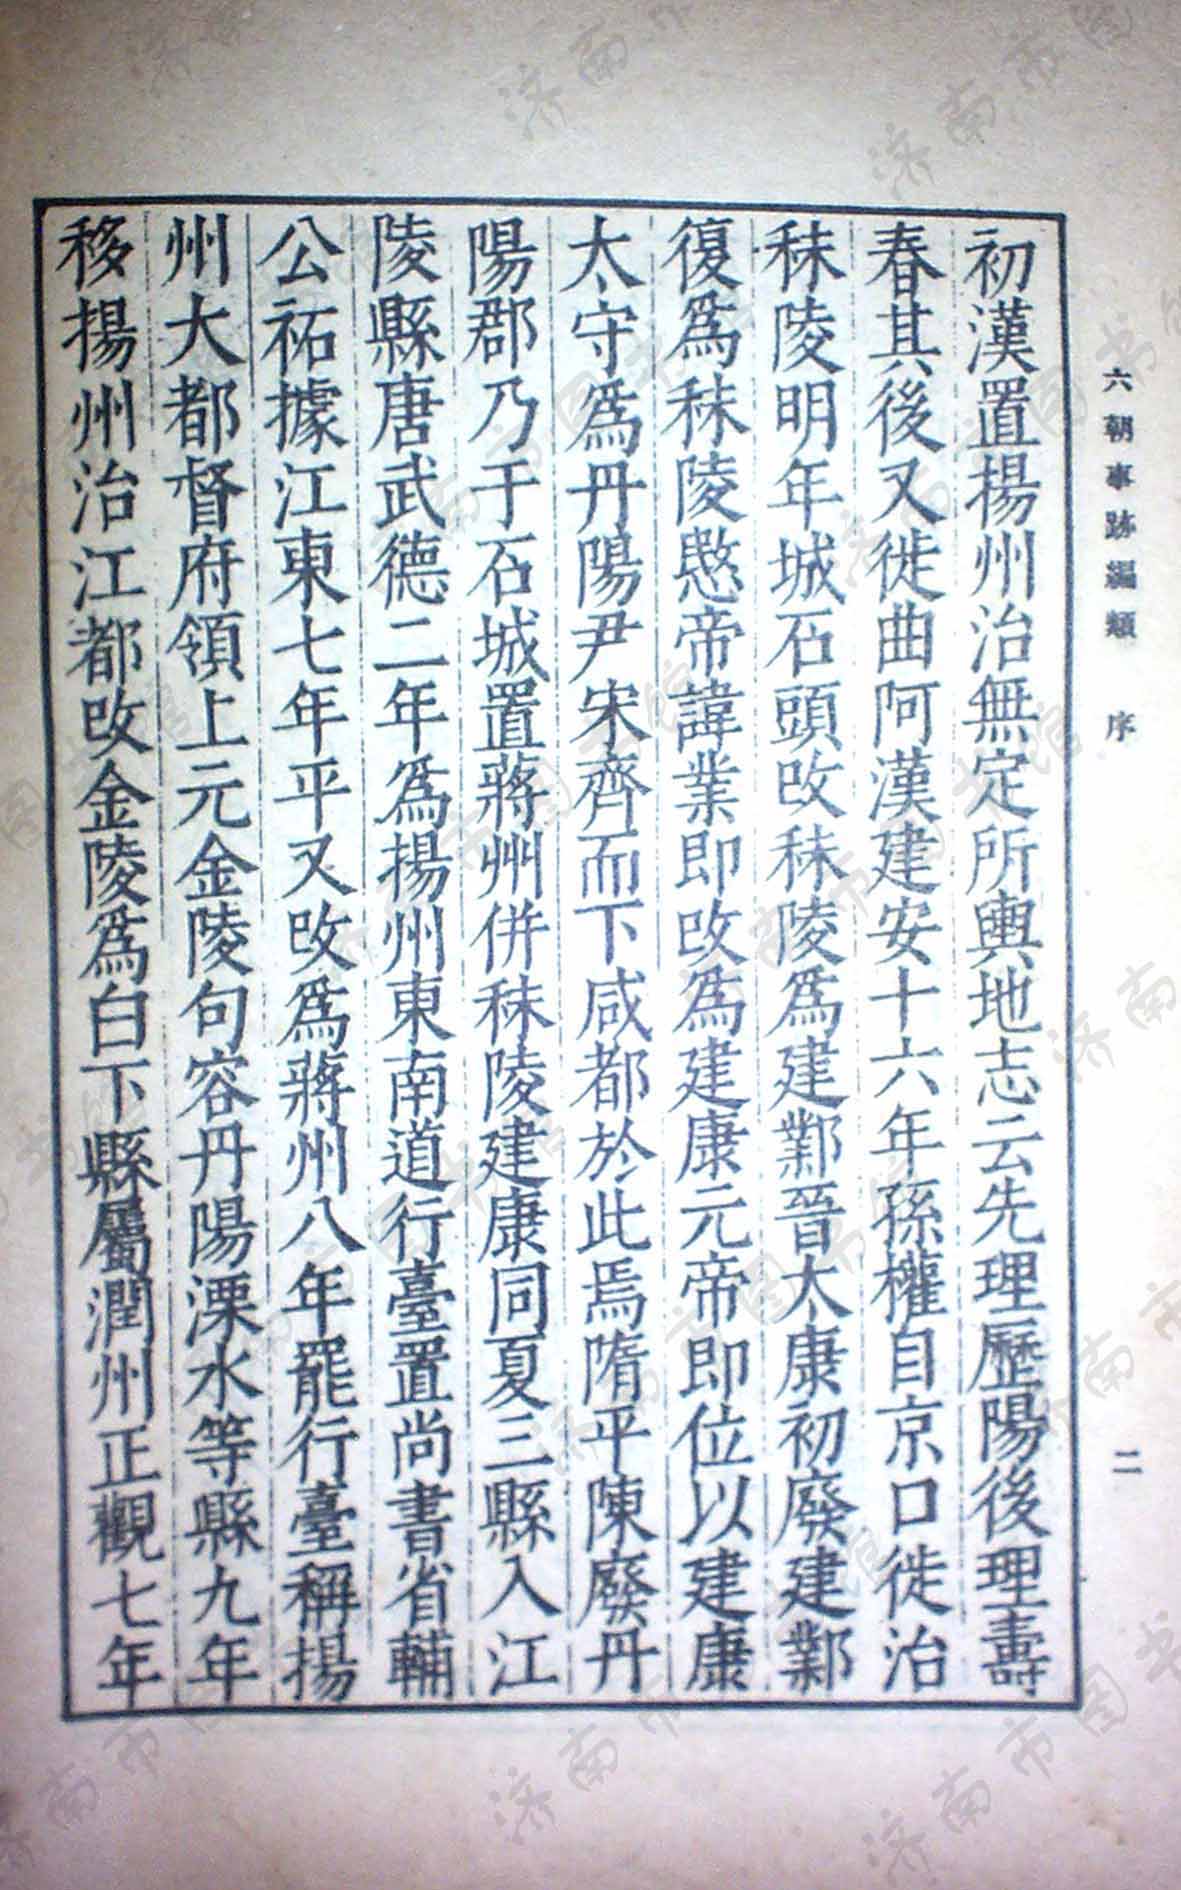 六朝事跡編類 序 二
初漢置揚州治無定所輿地志云先理歷陽後理壽
春其後又徙曲阿漢建安十六年孫權自京口徙治
秣陵明年城石頭改秣陵爲建鄴晉太康初廢建鄴
復爲秣陵愍帝諱業即改爲建康元帝即位以建康
太守爲丹陽尹宋齊而下咸都於此焉隋平陳廢丹
陽郡乃于石城置蔣州併秣陵建康同夏三縣入江
陵縣唐武德二年爲揚州東南道行臺置尚書省輔
公祏據江東七年平又改爲蔣州八年罷行臺稱揚
州大都督府領上元金陵句容丹陽溧水等縣九年
移揚州治江都改金陵爲白下縣屬潤州正觀七年
济南市图书馆